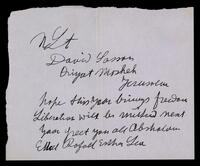 NLT
David Sasson
Oriyat Mosheh
Jerusalem
hope this year brings freedom
Liberation will be wished next
year greet you all Abshalom
Rafael Esther Lea